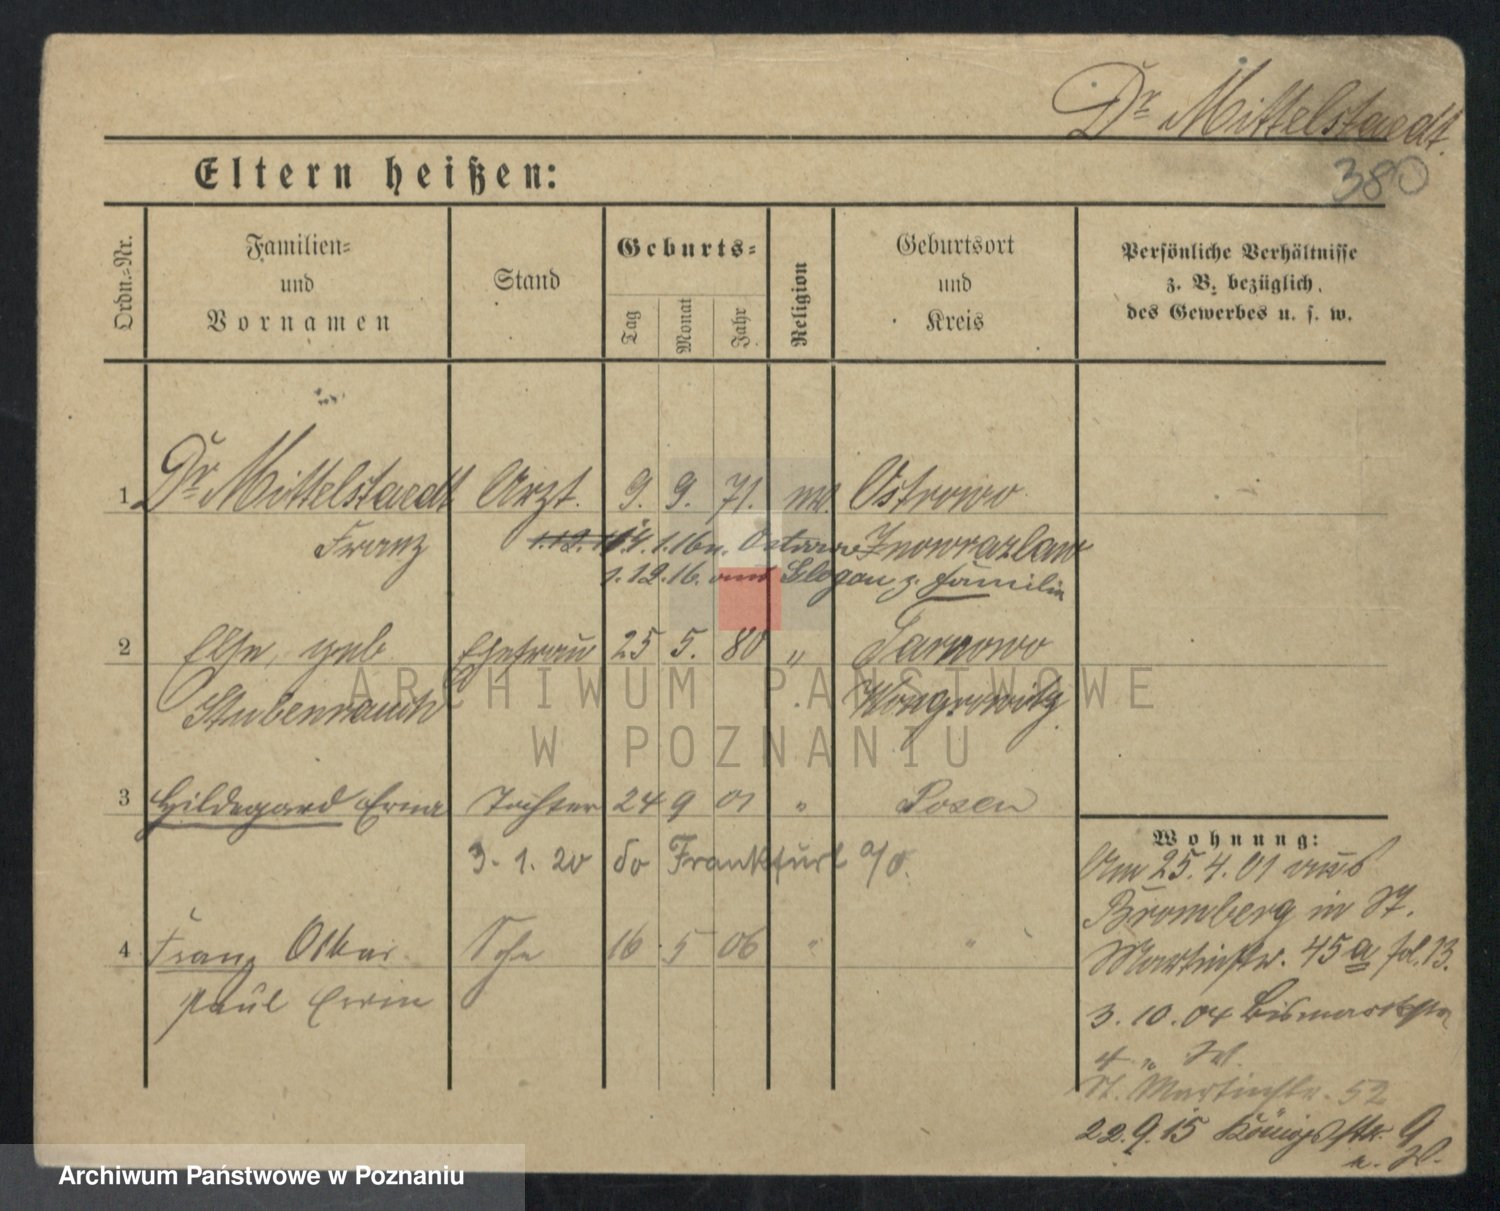 Dr Mittelstaedt.
380
Eltern heißen:
Ordn.-Nr.
Familien-
und
Vornamen
Stand
Geburts-
Tag
Monat
Jahr
Religion
Geburtsort
und
Kreis
Persönliche Verhältnisse
z. B. bezüglich
des Gewerbes u. s. w.
1 Dr Mittelstaedt Arzt. 9. 9. 71. Ostrowo
Franz 1.16 Inowrazlaw
1.12.16. Glogau z. Familie
2 Else, geb. Ehefrau 25 5. 80 " Tarnowo
Stubenrauch Wongrowitz
3 Hildegard Erna Tochter 24 9 01 " Posen
3. 1. 20 do Frankfurt a/O.
4 Franz Oskar Sohn 16 5 06 " "
Paul Erwin
Wohnung:
Am 25.4.01 aus
Bromberg in St.
Martinstr. 45a fol. 13.
3. 10. 04
St. Martinstr. 52
22.9.15 Königstr. 9
ARCHIWUM PAŃSTWOWE
W POZNANIU
Archiwum Państwowe w Poznaniu